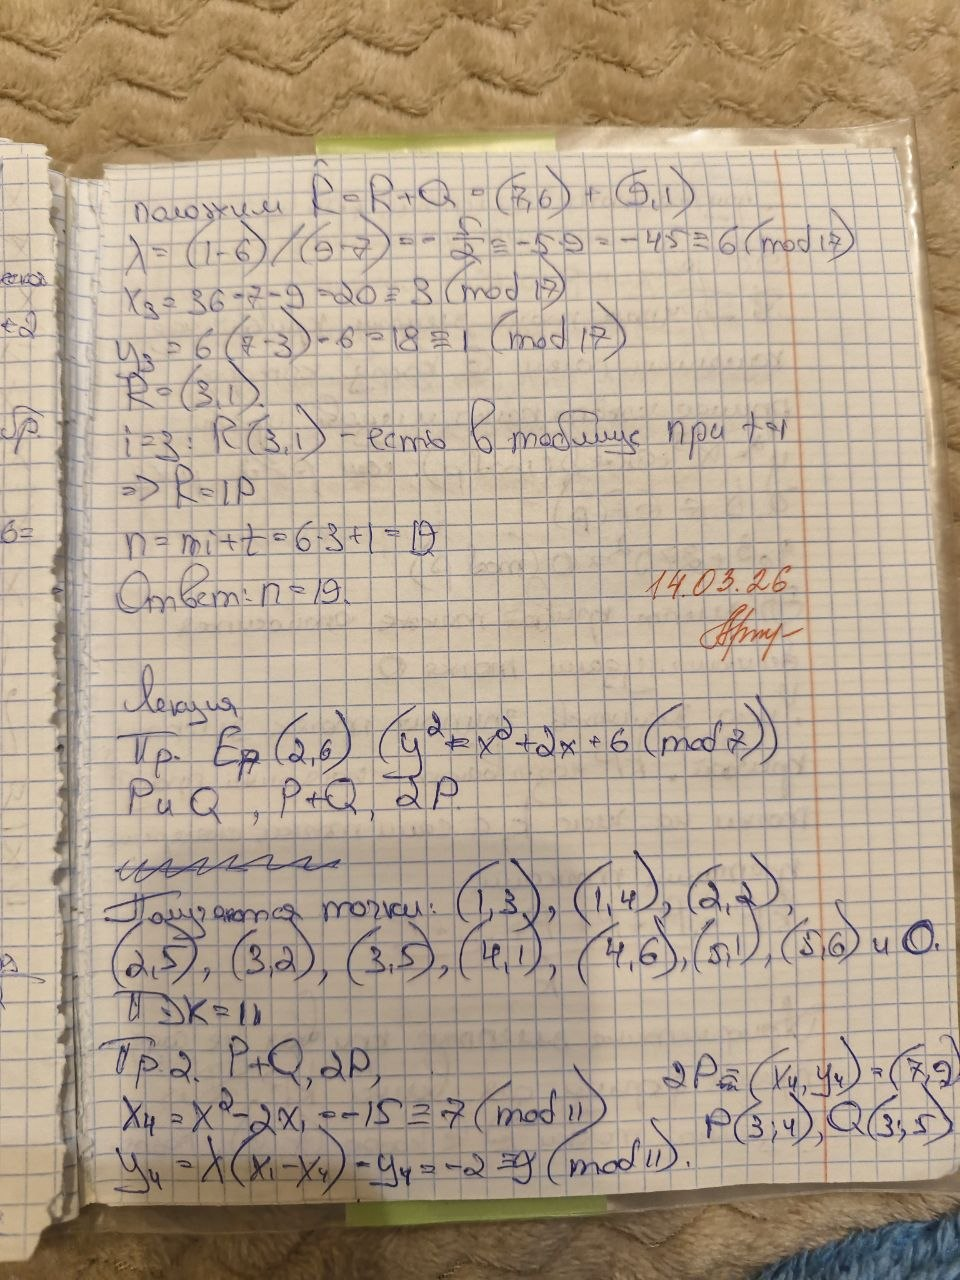 положим R = R+Q = (7,6) + (9,1)
λ = (1-6)/(9-7) = -5/2 ≡ -5·9 = -45 ≡ 6 (mod 17)
x₃ = 36-7-9 = 20 ≡ 3 (mod 17)
y₃ = 6(7-3)-6 = 18 ≡ 1 (mod 17)
R = (3,1).
i=3: R(3,1) - есть в таблице при t=1
=> R = 1P
n = mi+t = 6·3+1 = 19
Ответ: n = 19.
14.03.26
Лекция
Пр. E₇ (2,6) (y² = x² + 2x + 6 (mod 7))
P и Q, P+Q, 2P.
Получаются точки: (1,3), (1,4), (2,2),
(2,5), (3,2), (3,5), (4,1), (4,6), (5,1), (5,6) и O.
ПЭК = 11
Пр.2. P+Q, 2P,
2P = (x₄, y₄) = (7,9)
x₄ = λ² - 2x₁ = -15 ≡ 7 (mod 11)
P(3,4), Q(3,5)
y₄ = λ(x₁-x₄) - y₄ = -2 ≡ 9 (mod 11).